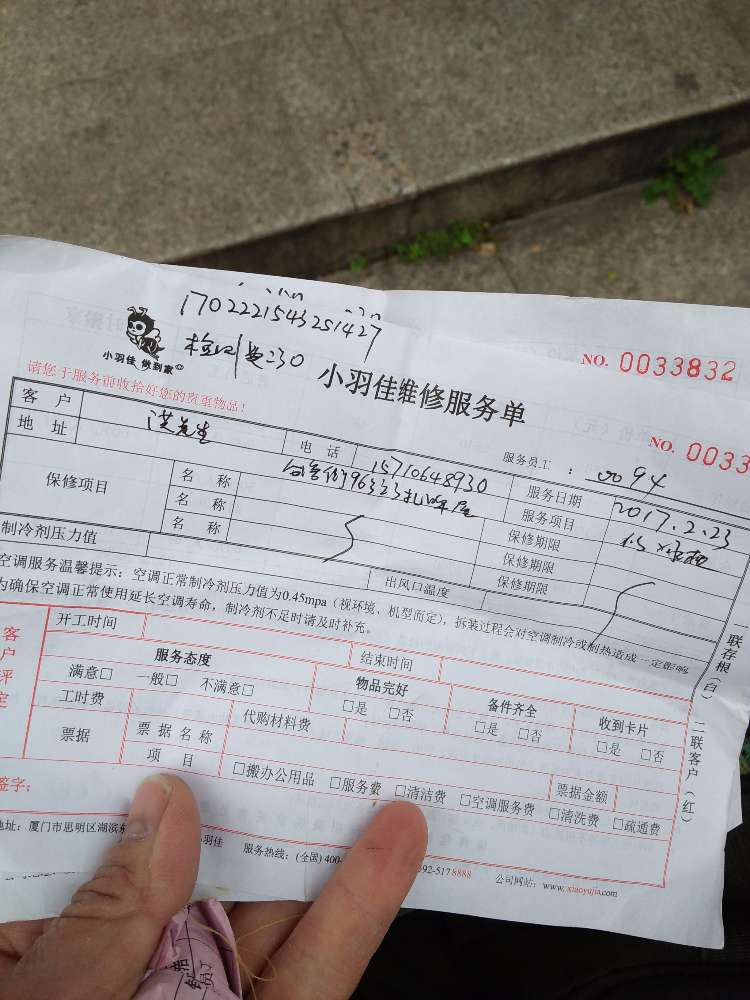 1702221543251427
检测费:30
小羽佳 做到家
NO. 0033832
小羽佳维修服务单
NO. 0033
请您于服务前收拾好您的贵重物品!
服务员工 : 0094
客 户 洪先生 电 话 15710648930 服务日期 2017.2.23
地 址 服务项目
保修项目 名 称 保修期限
名 称 保修期限
名 称 保修期限
制冷剂压力值 出风口温度
空调服务温馨提示:空调正常制冷剂压力值为0.45mpa(视环境、机型而定),拆装过程会对空调制冷或制热造成一定影响
为确保空调正常使用延长空调寿命,制冷剂不足时请及时补充。
一联存根(白) 二联客户(红)
客户评定
开工时间 结束时间
服务态度 物品完好 备件齐全 收到卡片
满意□ 一般□ 不满意□ □是 □否 □是 □否 □是 □否
工时费 代购材料费
票据 票据名称 票据金额
项 目 □搬办公用品 □服务费 □清洁费 □空调服务费 □清洗费 □疏通费
签字:
地址:厦门市思明区湖滨 羽佳 服务热线:(全国)400- 92-5178888 公司网站:www.xiaoyujia.com